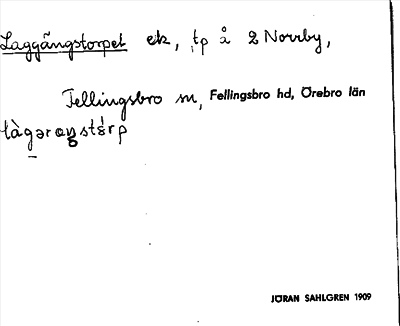 Laggångstorpet ek, tp å 2 Norrby,
Fellingsbro sn, Fellingsbro hd, Örebro län
JÖRAN SAHLGREN 1909